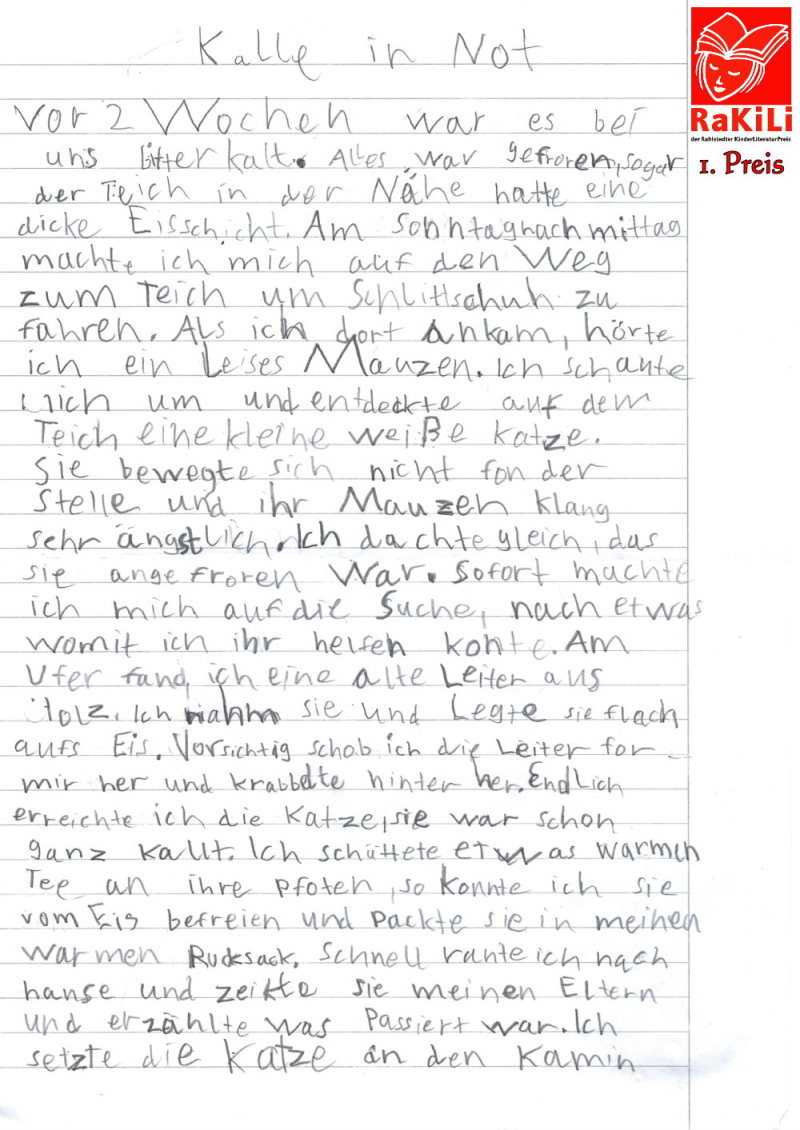 Kalle in Not
RaKiLi
der Rahlstedter KinderLiteraturPreis
1. Preis
Vor 2 Wochen war es bei
uns bitter kalt. Alles war gefroren, sogar
der Teich in der Nähe hatte eine
dicke Eisschicht. Am Sonntagnachmittag
machte ich mich auf den Weg
zum Teich um Schlittschuh zu
fahren. Als ich dort ankam, hörte
ich ein Leises Mauzen. Ich schaute
mich um und entdeckte auf dem
Teich eine kleine weiße Katze.
Sie bewegte sich nicht fon der
Stelle und ihr Mauzen klang
sehr ängstlich. Ich dachte gleich, das
sie angefroren war. Sofort machte
ich mich auf die Suche, nach etwas
womit ich ihr helfen konte. Am
Ufer fand ich eine alte Leiter aus
Holz. Ich nahm sie und Legte sie flach
aufs Eis. Vorsichtig schob ich die Leiter for
mir her und krabbelte hinter her. Endlich
erreichte ich die Katze, sie war schon
ganz kallt. Ich schüttete etwas warmen
Tee an ihre Pfoten, so konnte ich sie
vom Eis befreien und Packte sie in meinen
warmen Rucksack. Schnell rante ich nach
hause und zeikte sie meinen Eltern
und erzählte was Passiert war. Ich
setzte die Katze an den Kamin